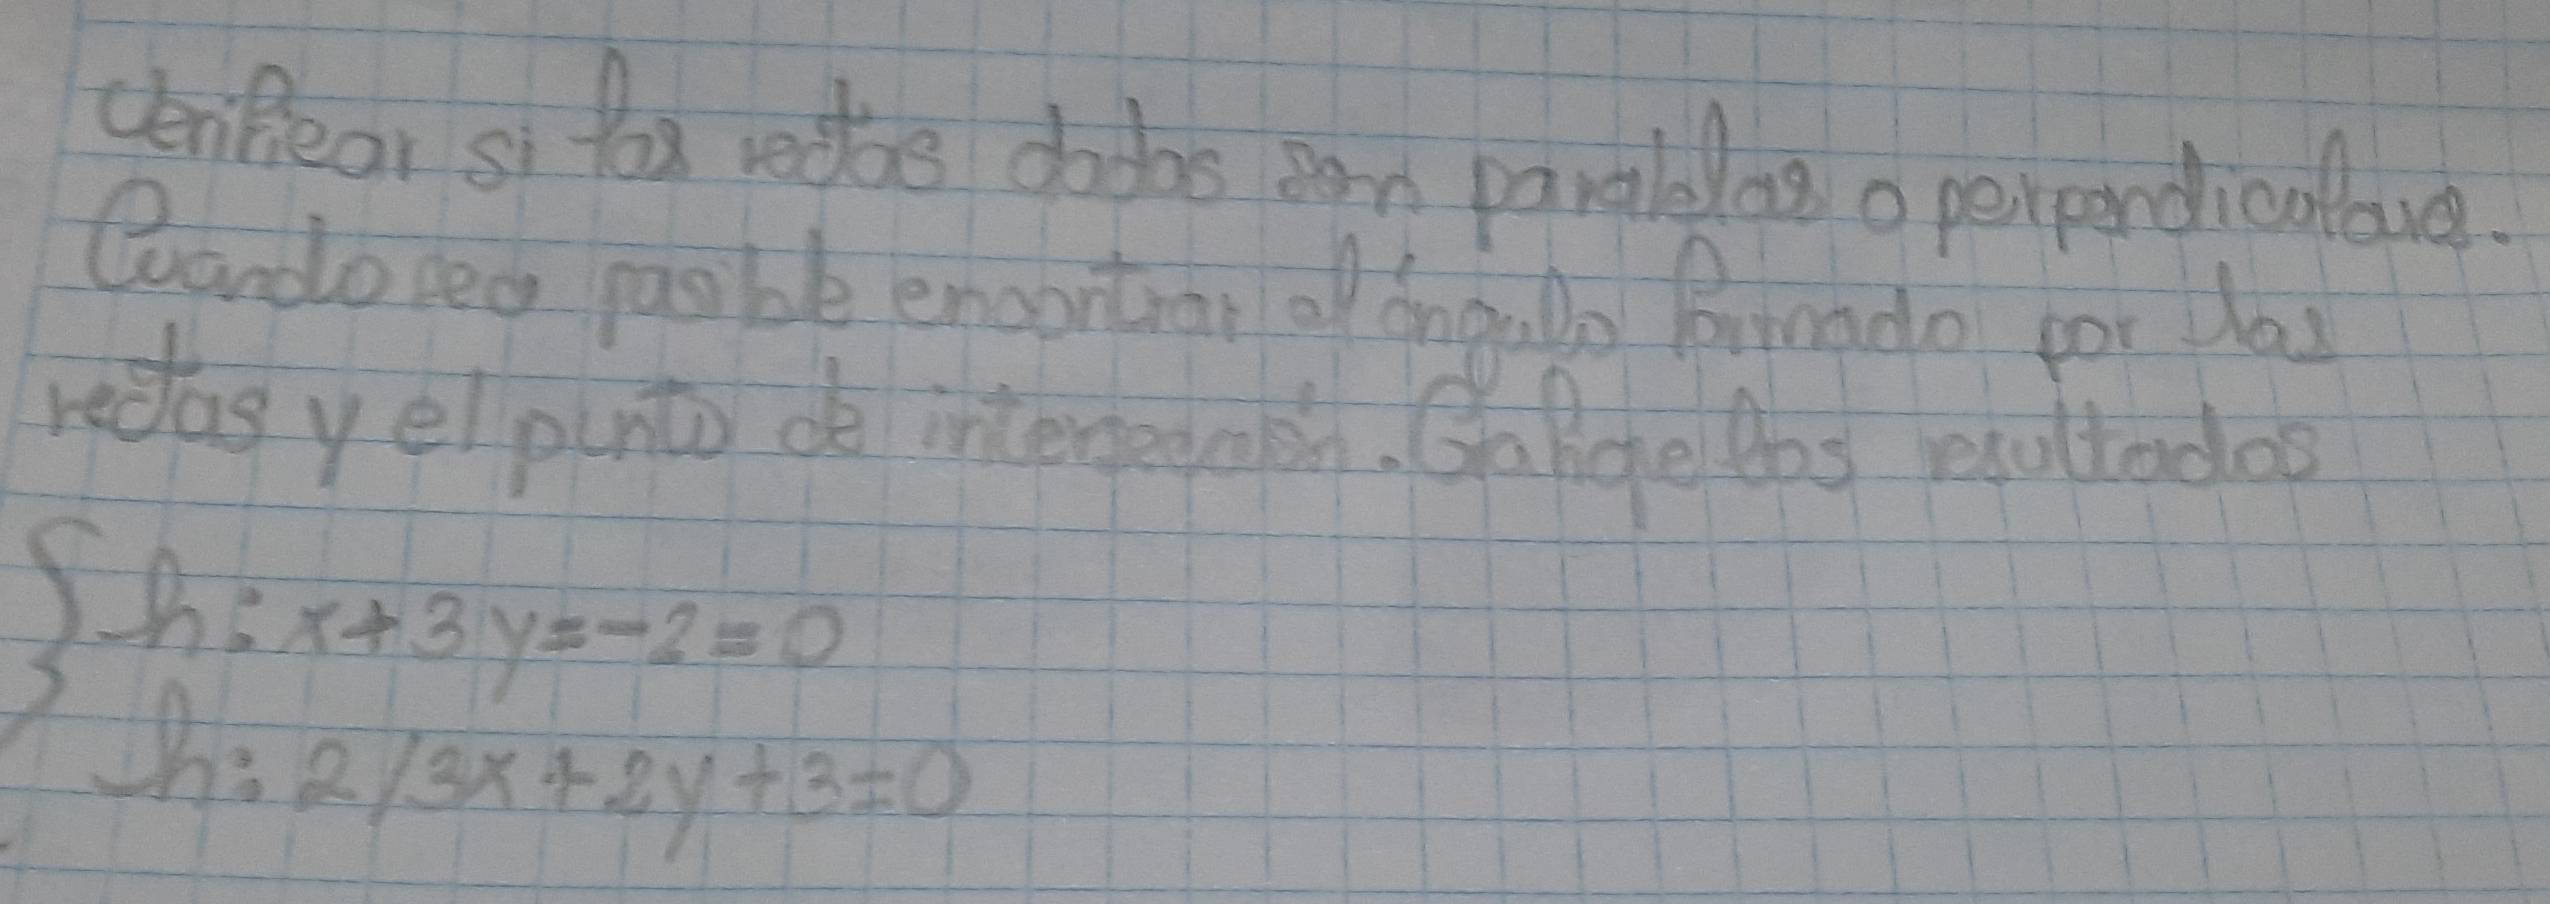 Verificar si las rectas dadas son paralelas o perpendiculares.
Cuando sea posible encontrar el ángulo formado por las
rectas y el punto de intersección. Grafique los resultados
h: x+3y=-2=0
h: 2/3x+2y+3=0